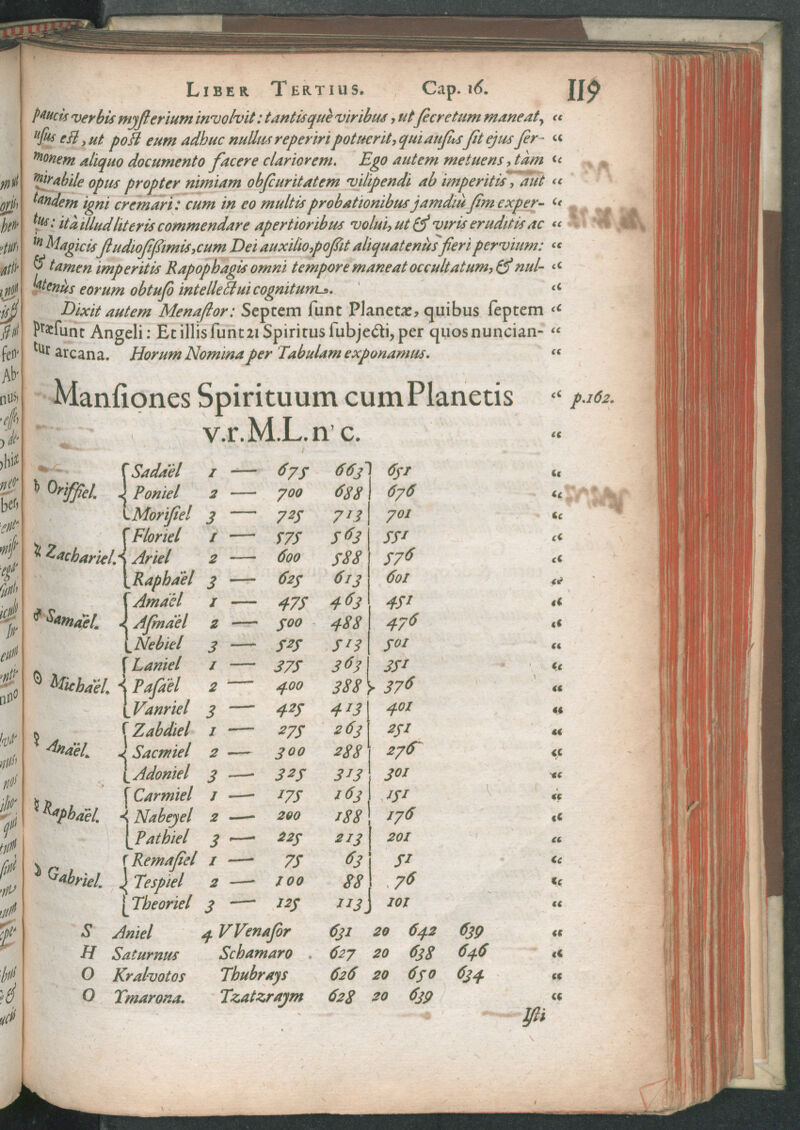 LIBER TERTIUS. Cap. 16. 119
paucis verbis myſterium involvit: tantisquè viribus, ut ſecretum maneat, “
uſus eſt, ut poſt eum adhuc nullus reperiri potuerit, qui auſus ſit ejus ſer- “
monem aliquo documento facere clariorem. Ego autem metuens, tàm “
mirabile opus propter nimiam obſcuritatem vilipendi ab imperitis, aut “
tandem igni cremari: cum in eo multis probationibus jamdiù ſim exper- “
tus: ità illud literis commendare apertioribus volui, ut & viris eruditis ac “
in Magicis ſtudioſiſſimis, cum Dei auxilio, poſſit aliquatenùs fieri pervium: “
& tamen imperitis Rapophagis omni tempore maneat occultatum, & nul- “
latenùs eorum obtuſo intellectui cognitum. “
Dixit autem Menaſtor: Septem ſunt Planetæ, quibus ſeptem “
præſunt Angeli: Et illis ſunt 21 Spiritus ſubjecti, per quos nuncian- “
tur arcana. Horum Nomina per Tabulam exponamus. “
Manſiones Spirituum cum Planetis “ p.162.
v.r.M.L.n’c. “
{ Sadaël 1 — 675 663 } 651 “
♄ Oriffiel. { Poniel 2 — 700 688 | 676 “
{ Moriſiel 3 — 725 713 | 701 “
{ Floriel 1 — 575 563 | 551 “
♃ Zachariel. { Ariel 2 — 600 588 | 576 “
{ Raphaël 3 — 625 613 | 601 “
{ Amaël 1 — 475 463 | 451 “
♂ Samaël. { Aſmaël 2 — 500 488 | 476 “
{ Nebiel 3 — 525 513 | 501 “
{ Laniel 1 — 375 363 | 351 “
☉ Michaël. { Paſaël 2 — 400 388 } 376 “
{ Vanriel 3 — 425 413 | 401 “
{ Zabdiel 1 — 275 263 | 251 “
♀ Anaël. { Sacmiel 2 — 300 288 | 276 “
{ Adoniel 3 — 325 313 | 301 “
{ Carmiel 1 — 175 163 | 151 “
☿ Raphaël. { Nabeyel 2 — 200 188 | 176 “
{ Pathiel 3 — 225 213 | 201 “
{ Remaſiel 1 — 75 63 | 51 “
☽ Gabriel. { Teſpiel 2 — 100 88 | 76 “
{ Theoriel 3 — 125 113 } 101 “
S Aniel 4 VVenaſor 631 20 642 639 “
H Saturnus Schamaro . 627 20 638 646 “
O Kralvotos Thubrays 626 20 650 634 “
O Ymarona. Tzatzraym 628 20 639 “
Iſti